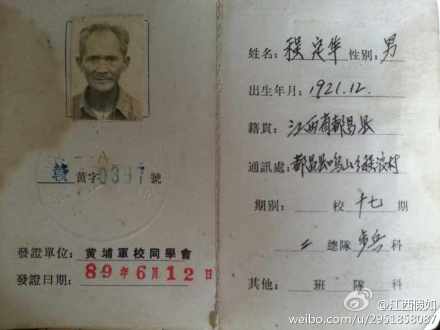 黄字0397號
發證單位：黄埔軍校同學會
發證日期：89年6月12日
姓名：程定华 性别：男
出生年月：1921.12.
籍貫：江西省都昌县
通訊處：都昌县鸣山乡
期别： 校 十七 期
二 總隊 步兵 科
其他： 班 隊 科
@江西假如
weibo.com/u/2951858087